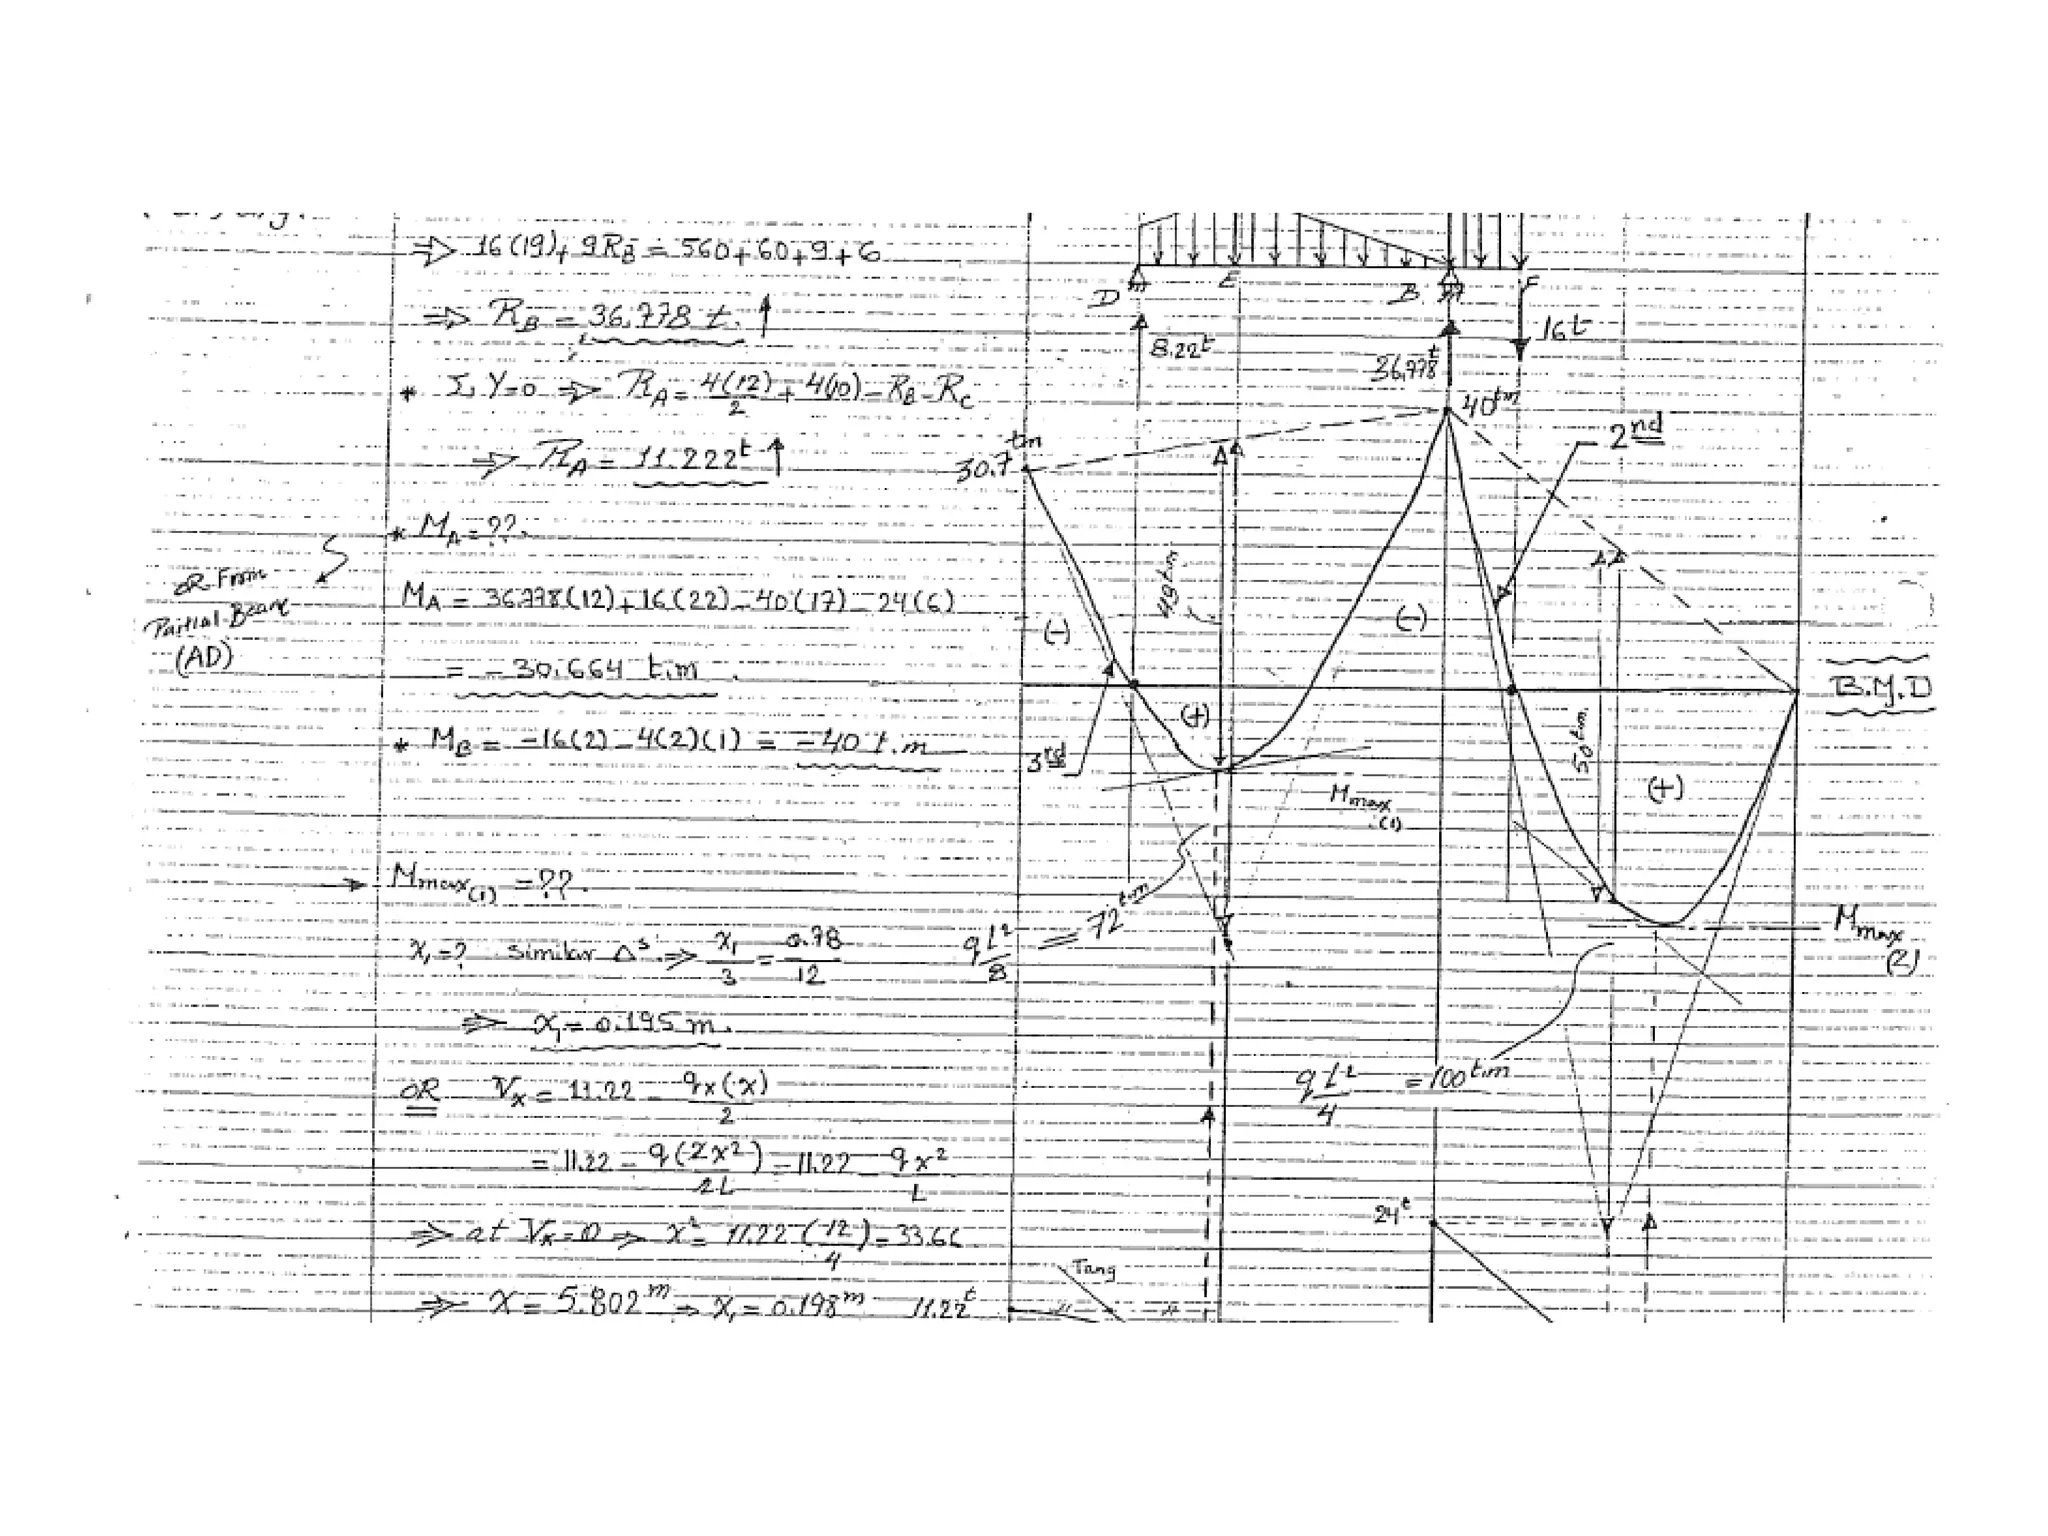 ⇒ 16(19)+9R_B = 560+60+9+6
⇒ R_B = 36.778 t. ↑
* Σ Y=0 ⇒ R_A = 4(12)/2 + 4(10) - R_B - R_C
⇒ R_A = 11.222 t ↑
* M_A = ??.
OR From
Partial Beam
(AD)
M_A = 36.778(12)+16(22)-40(17)-24(6)
= -30.664 t.m
* M_B = -16(2)-4(2)(1) = -40 t.m
→ M max(1) = ??.
X₁=? similar Δs ⇒ X₁/3 = 0.78/12
⇒ X₁ = 0.195 m.
OR V_x = 11.22 - q_x(x)/2
= 11.22 - q(2x²)/2L = 11.22 - qx²/L
⇒ at V_x=0 ⇒ x² = 11.22 (12/4) = 33.66
⇒ X = 5.802 m → X₁ = 0.198 m
D
E
B
F
8.22 t
36.778 t
16 t
40 tm
30.7 tm
2nd
48 t.m
(-)
(+)
(-)
3rd
B.M.D
50 t.m.
(+)
M max (1)
qL²/8 = 72 t.m
M max (2)
qL²/4 = 100 t.m
24 t
Tang
11.22 t